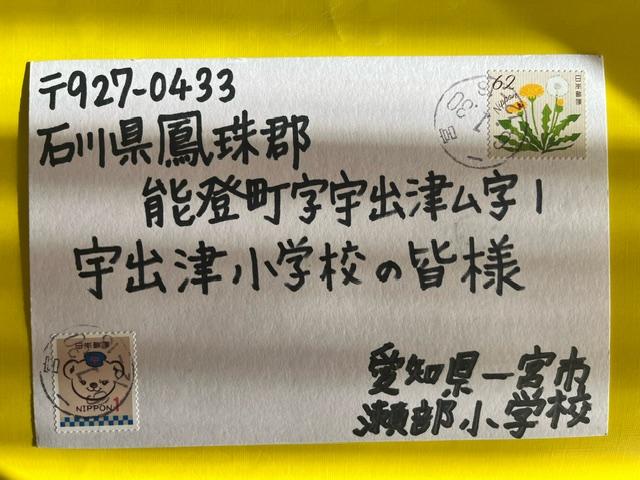 〒927-0433
石川県鳳珠郡
能登町字宇出津ム字1
宇出津小学校の皆様
愛知県一宮市
瀬部小学校
62
Nippon
日本郵便
日本郵便
NIPPON 1